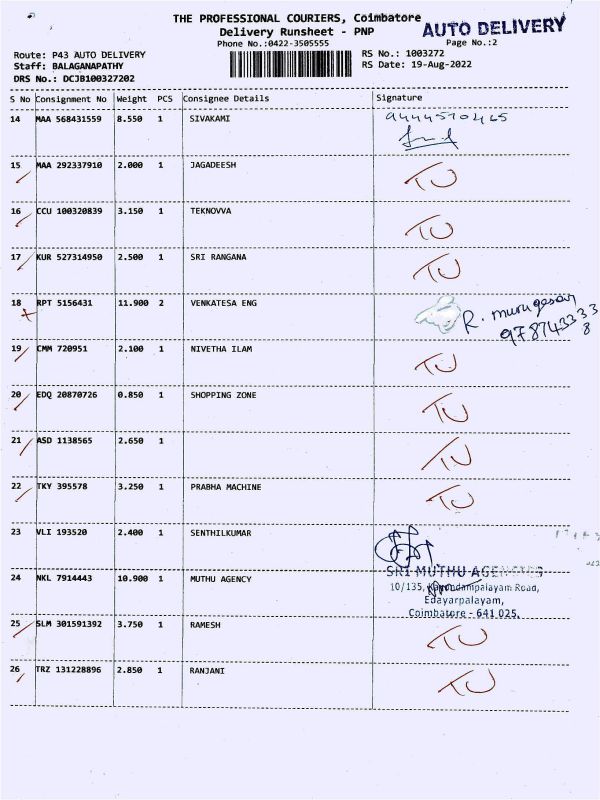 THE PROFESSIONAL COURIERS, Coimbatore
AUTO DELIVERY
Delivery Runsheet - PNP
Phone No.:0422-3505555
Page No.:2
Route: P43 AUTO DELIVERY
RS No.: 1003272
Staff: BALAGANAPATHY
RS Date: 19-Aug-2022
DRS No.: DCJB100327202
S No Consignment No Weight PCS Consignee Details Signature
14 MAA 568431559 8.550 1 SIVAKAMI
15 MAA 292337910 2.000 1 JAGADEESH TU
16 CCU 100320839 3.150 1 TEKNOVVA TU
17 KUR 527314950 2.500 1 SRI RANGANA TU
18 RPT 5156431 11.900 2 VENKATESA ENG R. murugesan
19 CMM 720951 2.100 1 NIVETHA ILAM TU
20 EDQ 20870726 0.850 1 SHOPPING ZONE TU
21 ASD 1138565 2.650 1 TU
22 TKY 395578 3.250 1 PRABHA MACHINE TU
23 VLI 193520 2.400 1 SENTHILKUMAR
24 NKL 7914443 10.900 1 MUTHU AGENCY
SRI MUTHU AGENCIES
10/135, Kavundampalayam Road,
Edayarpalayam,
Coimbatore - 641 025.
25 SLM 301591392 3.750 1 RAMESH TU
26 TRZ 131228896 2.850 1 RANJANI TU